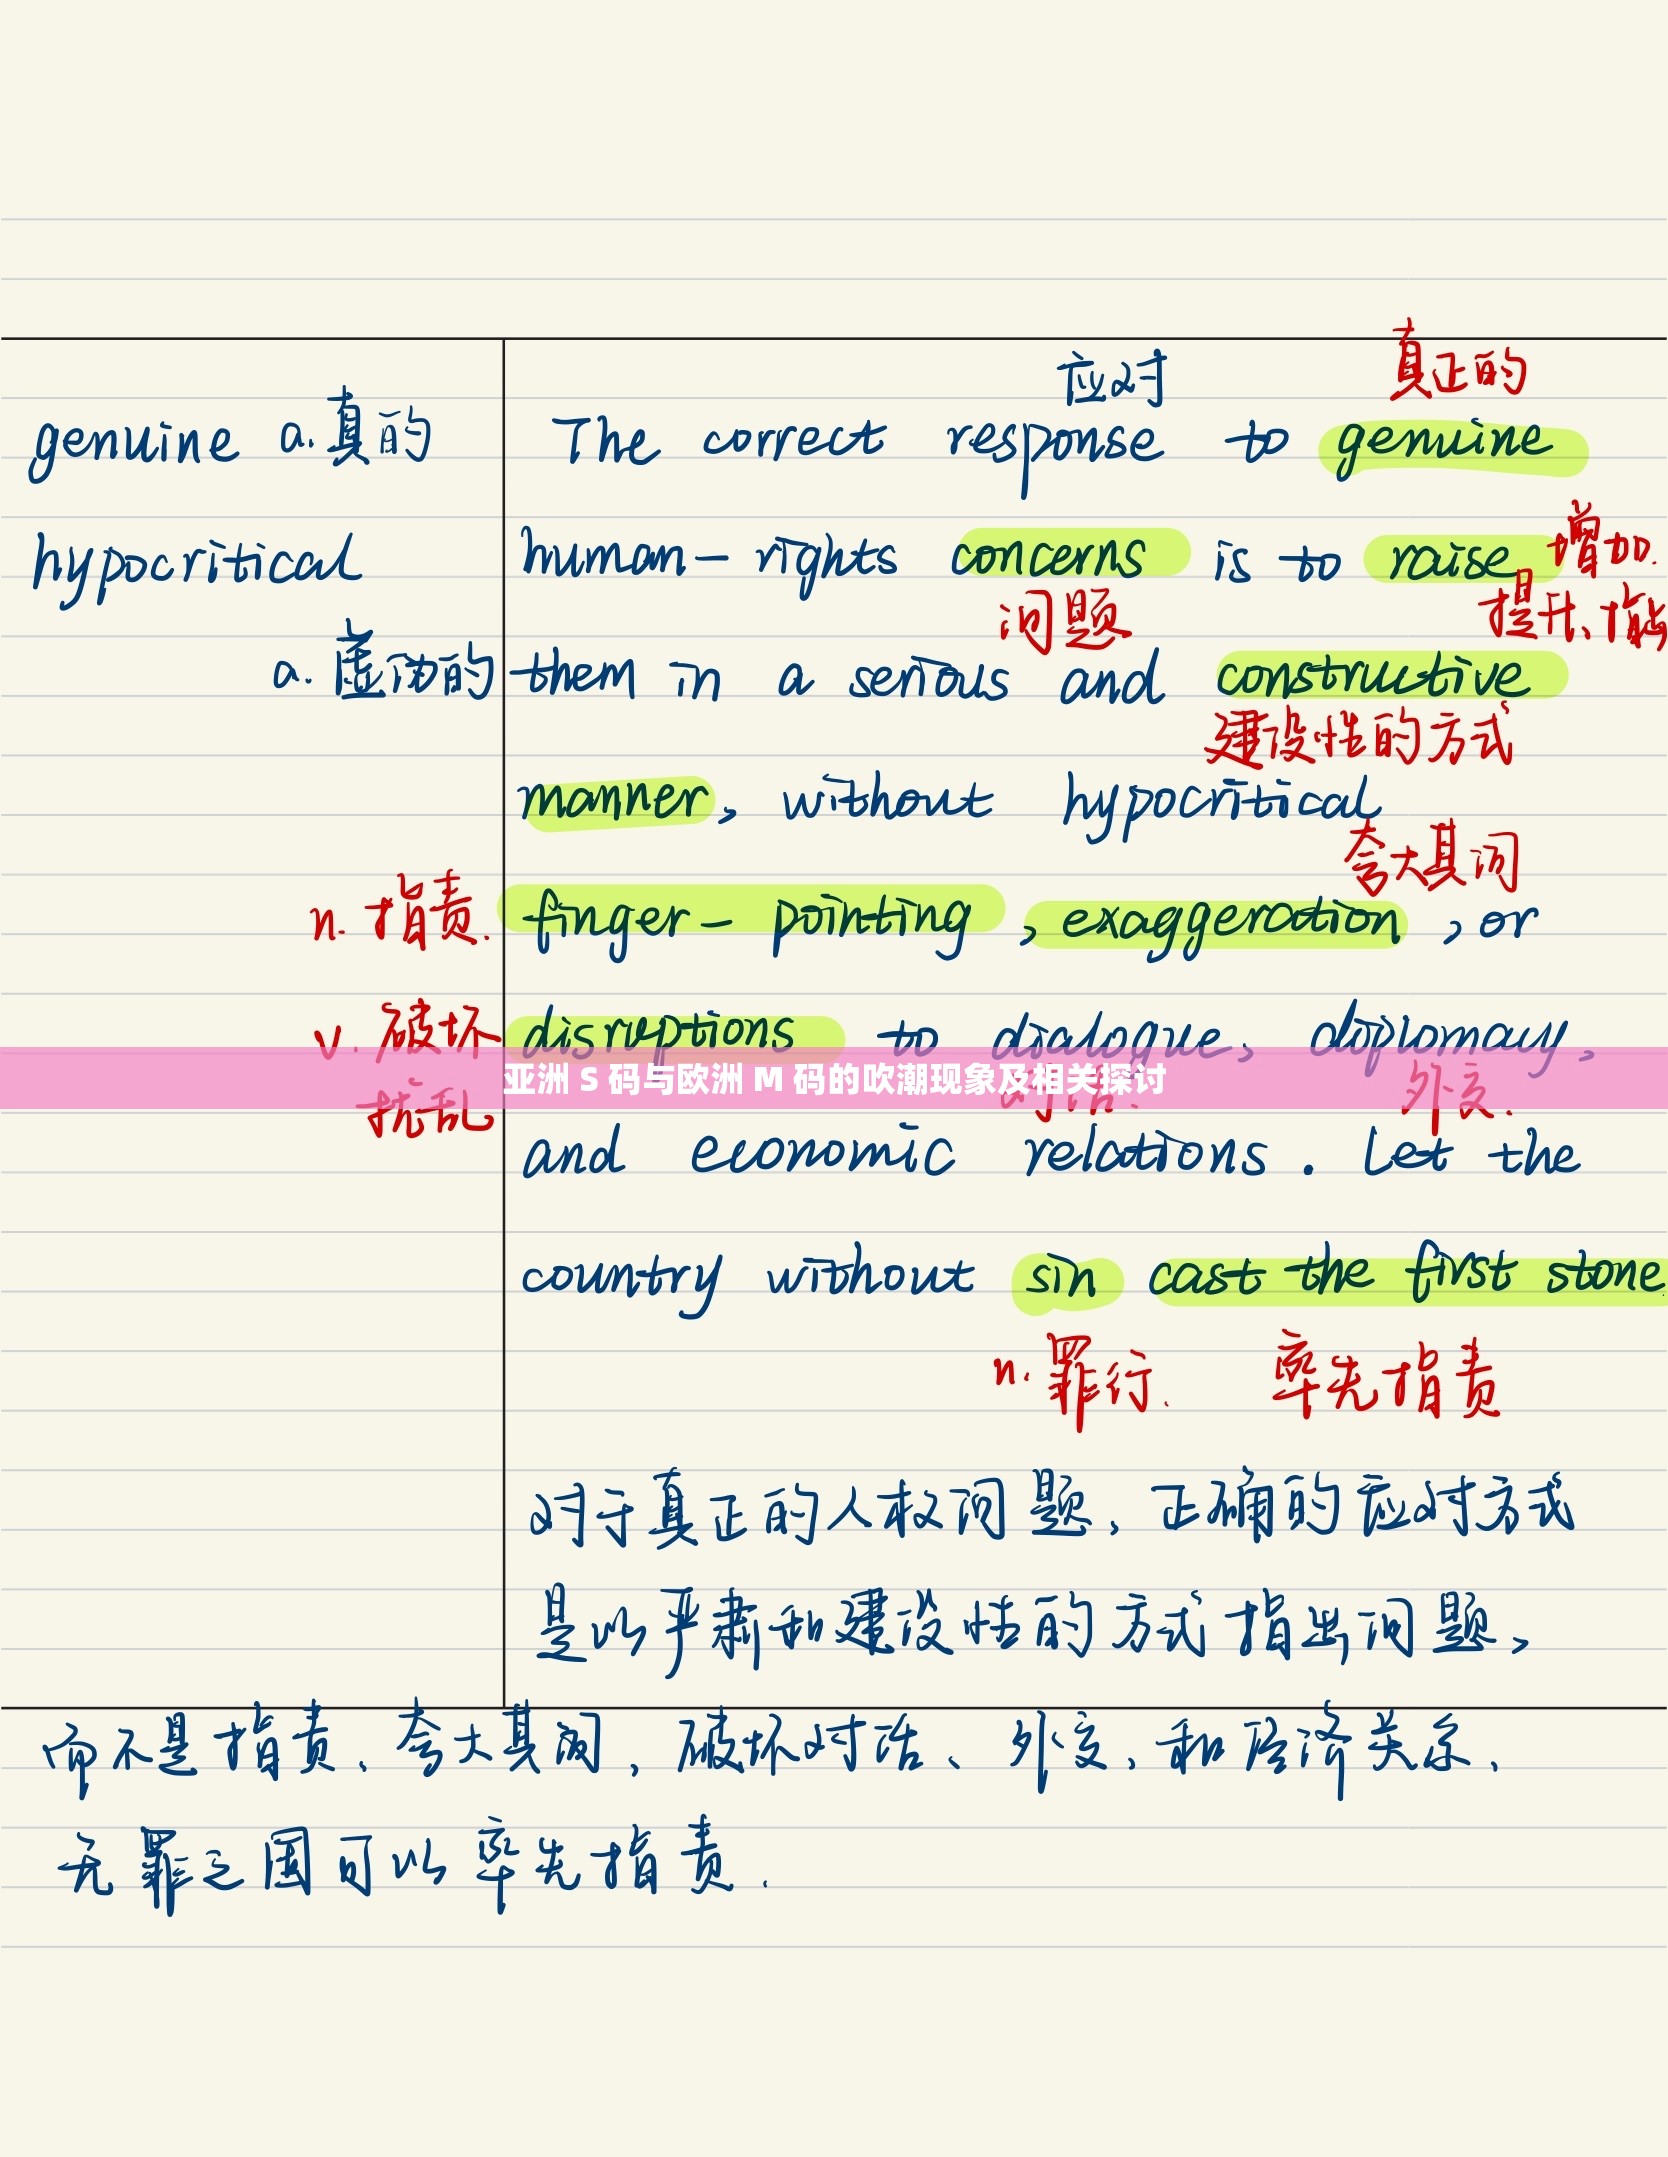 应对 真正的
genuine a.真的 The correct response to genuine
hypocritical human-rights concerns is to raise 增加.
问题 提升、指出
a.虚伪的 them in a serious and constructive
建设性的方式
manner, without hypocritical
夸大其词
n.指责. finger-pointing, exaggeration, or
v.破坏 disruptions to dialogue, diplomacy,
亚洲 S 码与欧洲 M 码的吹潮现象及相关探讨
扰乱 对话. 外交.
and economic relations. Let the
country without sin cast the first stone.
n.罪行. 率先指责
对于真正的人权问题,正确的应对方式
是以严肃和建设性的方式指出问题,
而不是指责、夸大其词,破坏对话、外交、和经济关系,
无罪之国可以率先指责.